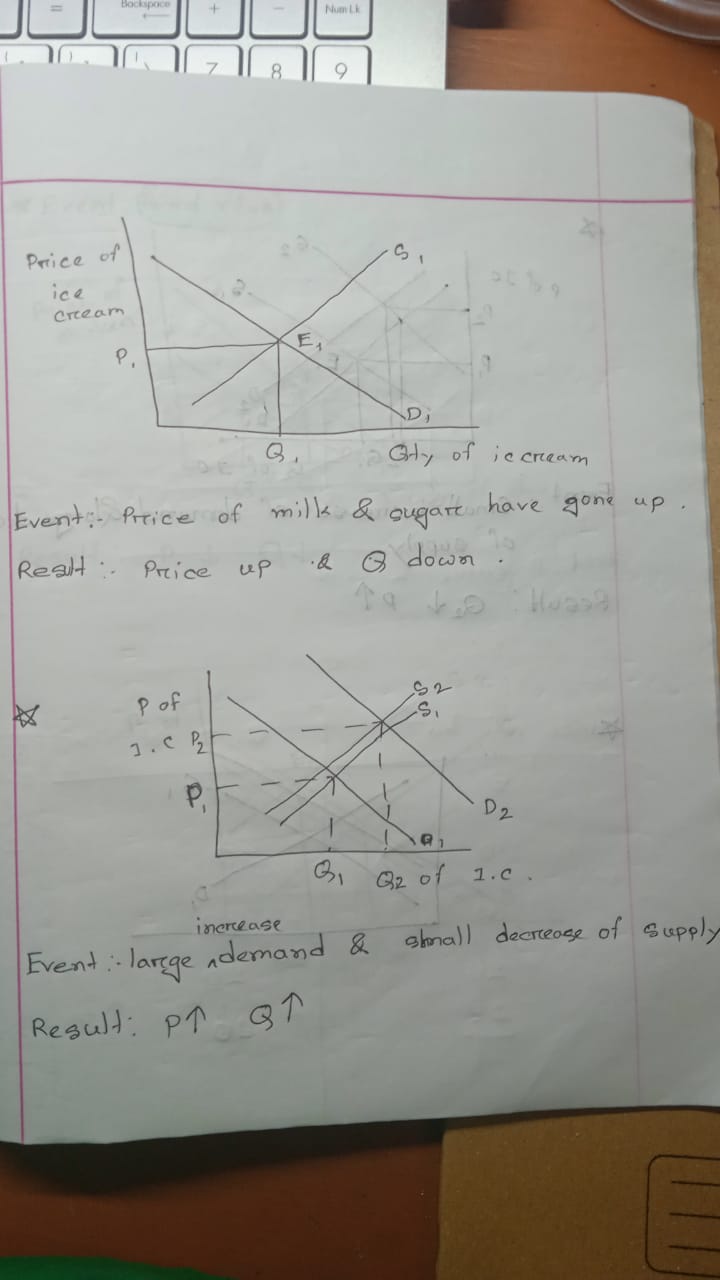 = Backspace + - Num Lk
7 8 9
Price of
ice
cream
S₁
P₁
E₁
D₁
Q₁
Qty of ic cream
Event:- Price of milk & sugar have gone up.
Reslt:- Price up & Q down.
P of
I.C
P₂
S2
S₁
P₁
D₂
Q₁ Q2 of I.C.
increase
Event:- large demand & small decrease of supply
Result: P↑ Q↑